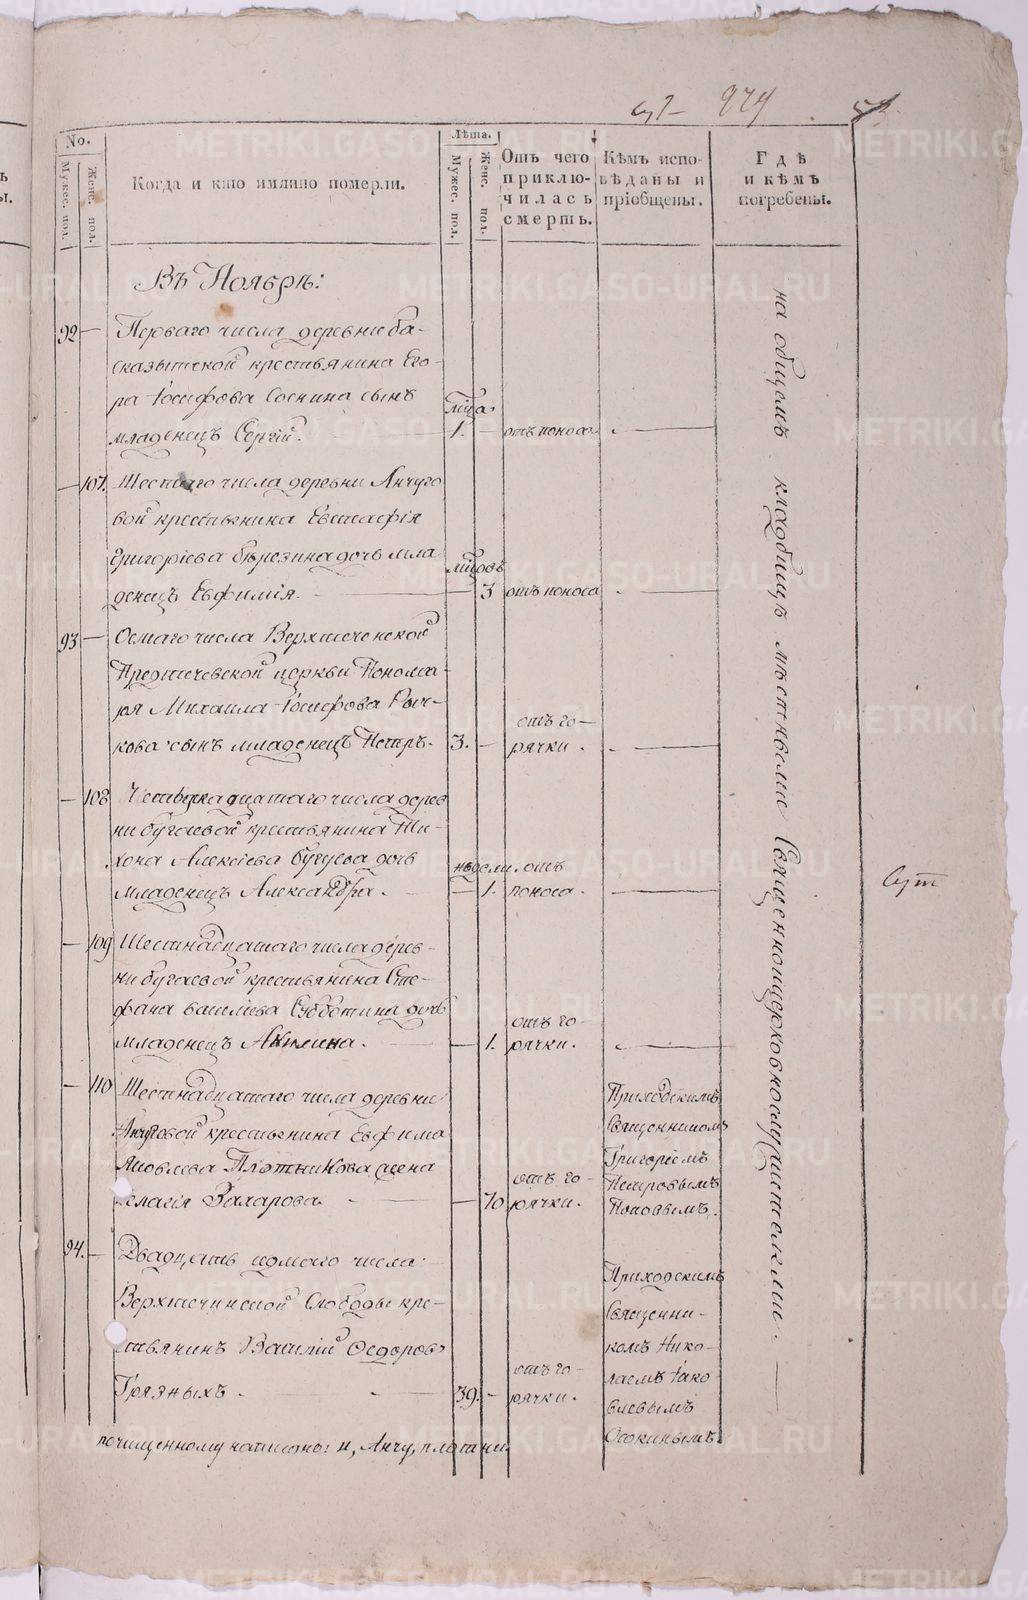 974
No.
Мужес. пол.
Женс. пол.
Когда и кто имяно померли.
Лѣта.
Мужес. пол.
Женс. пол.
Отъ чего
приклю-
чилась
смерть.
Кѣмъ испо-
вѣданы и
пріобщены.
Гдѣ
и кѣмъ
погребены.
Въ Ноябрѣ:
92 — Перваго числа деревни Ба-
казытской крестьянина Его-
ра Іосифова Соснина сынъ
младенецъ Сергій. 1. — отъ поноса
— 107. Шестаго числа деревни Анчуго
вой крестьянина Евстафія
Григоріева Березина дочь мла
денецъ Евфимія. — 3 отъ поноса
93 — Осмаго числа Верхтеченской
Предтечевской церкви Понома-
ря Михаила Іосифова Рыч-
кова сынъ младенецъ Петръ. 3. — отъ го-
рячки.
— 108 Четырнадцатаго числа дерев
ни Бугаевой крестьянина Ти-
хона Алексіева Бугуева дочь
младенецъ Александра. недели. — 1. отъ
поноса.
— 109 Шестнадцатаго числа дерев-
ни Бугаевой крестьянина Сте-
фана Василіева Субботина дочь
младенецъ Акилина. — 1. отъ го-
рячки.
— 110 Шестнадцатаго числа деревни
Анчуговой крестьянина Евфима
Яковлева Плотникова жена
Пелагія Захарова — 70 отъ го-
рячки.
Приходскимъ
Священникомъ
Григоріемъ
Петровымъ
Поповымъ.
94. — Двадцать седмаго числа
Верхтечинской Слободы кре-
стьянинъ Василій Ѳедоровъ
Грязныхъ. 39. — отъ го-
рячки.
Приходскимъ
Священни-
комъ Нико-
лаемъ Іако-
влевымъ
Осокинымъ
на общемъ кладбищѣ мѣстными Священноцерковнослужителями.
почищенному написано: и, Анчу, плотни
METRIKI.GASO-URAL.RU